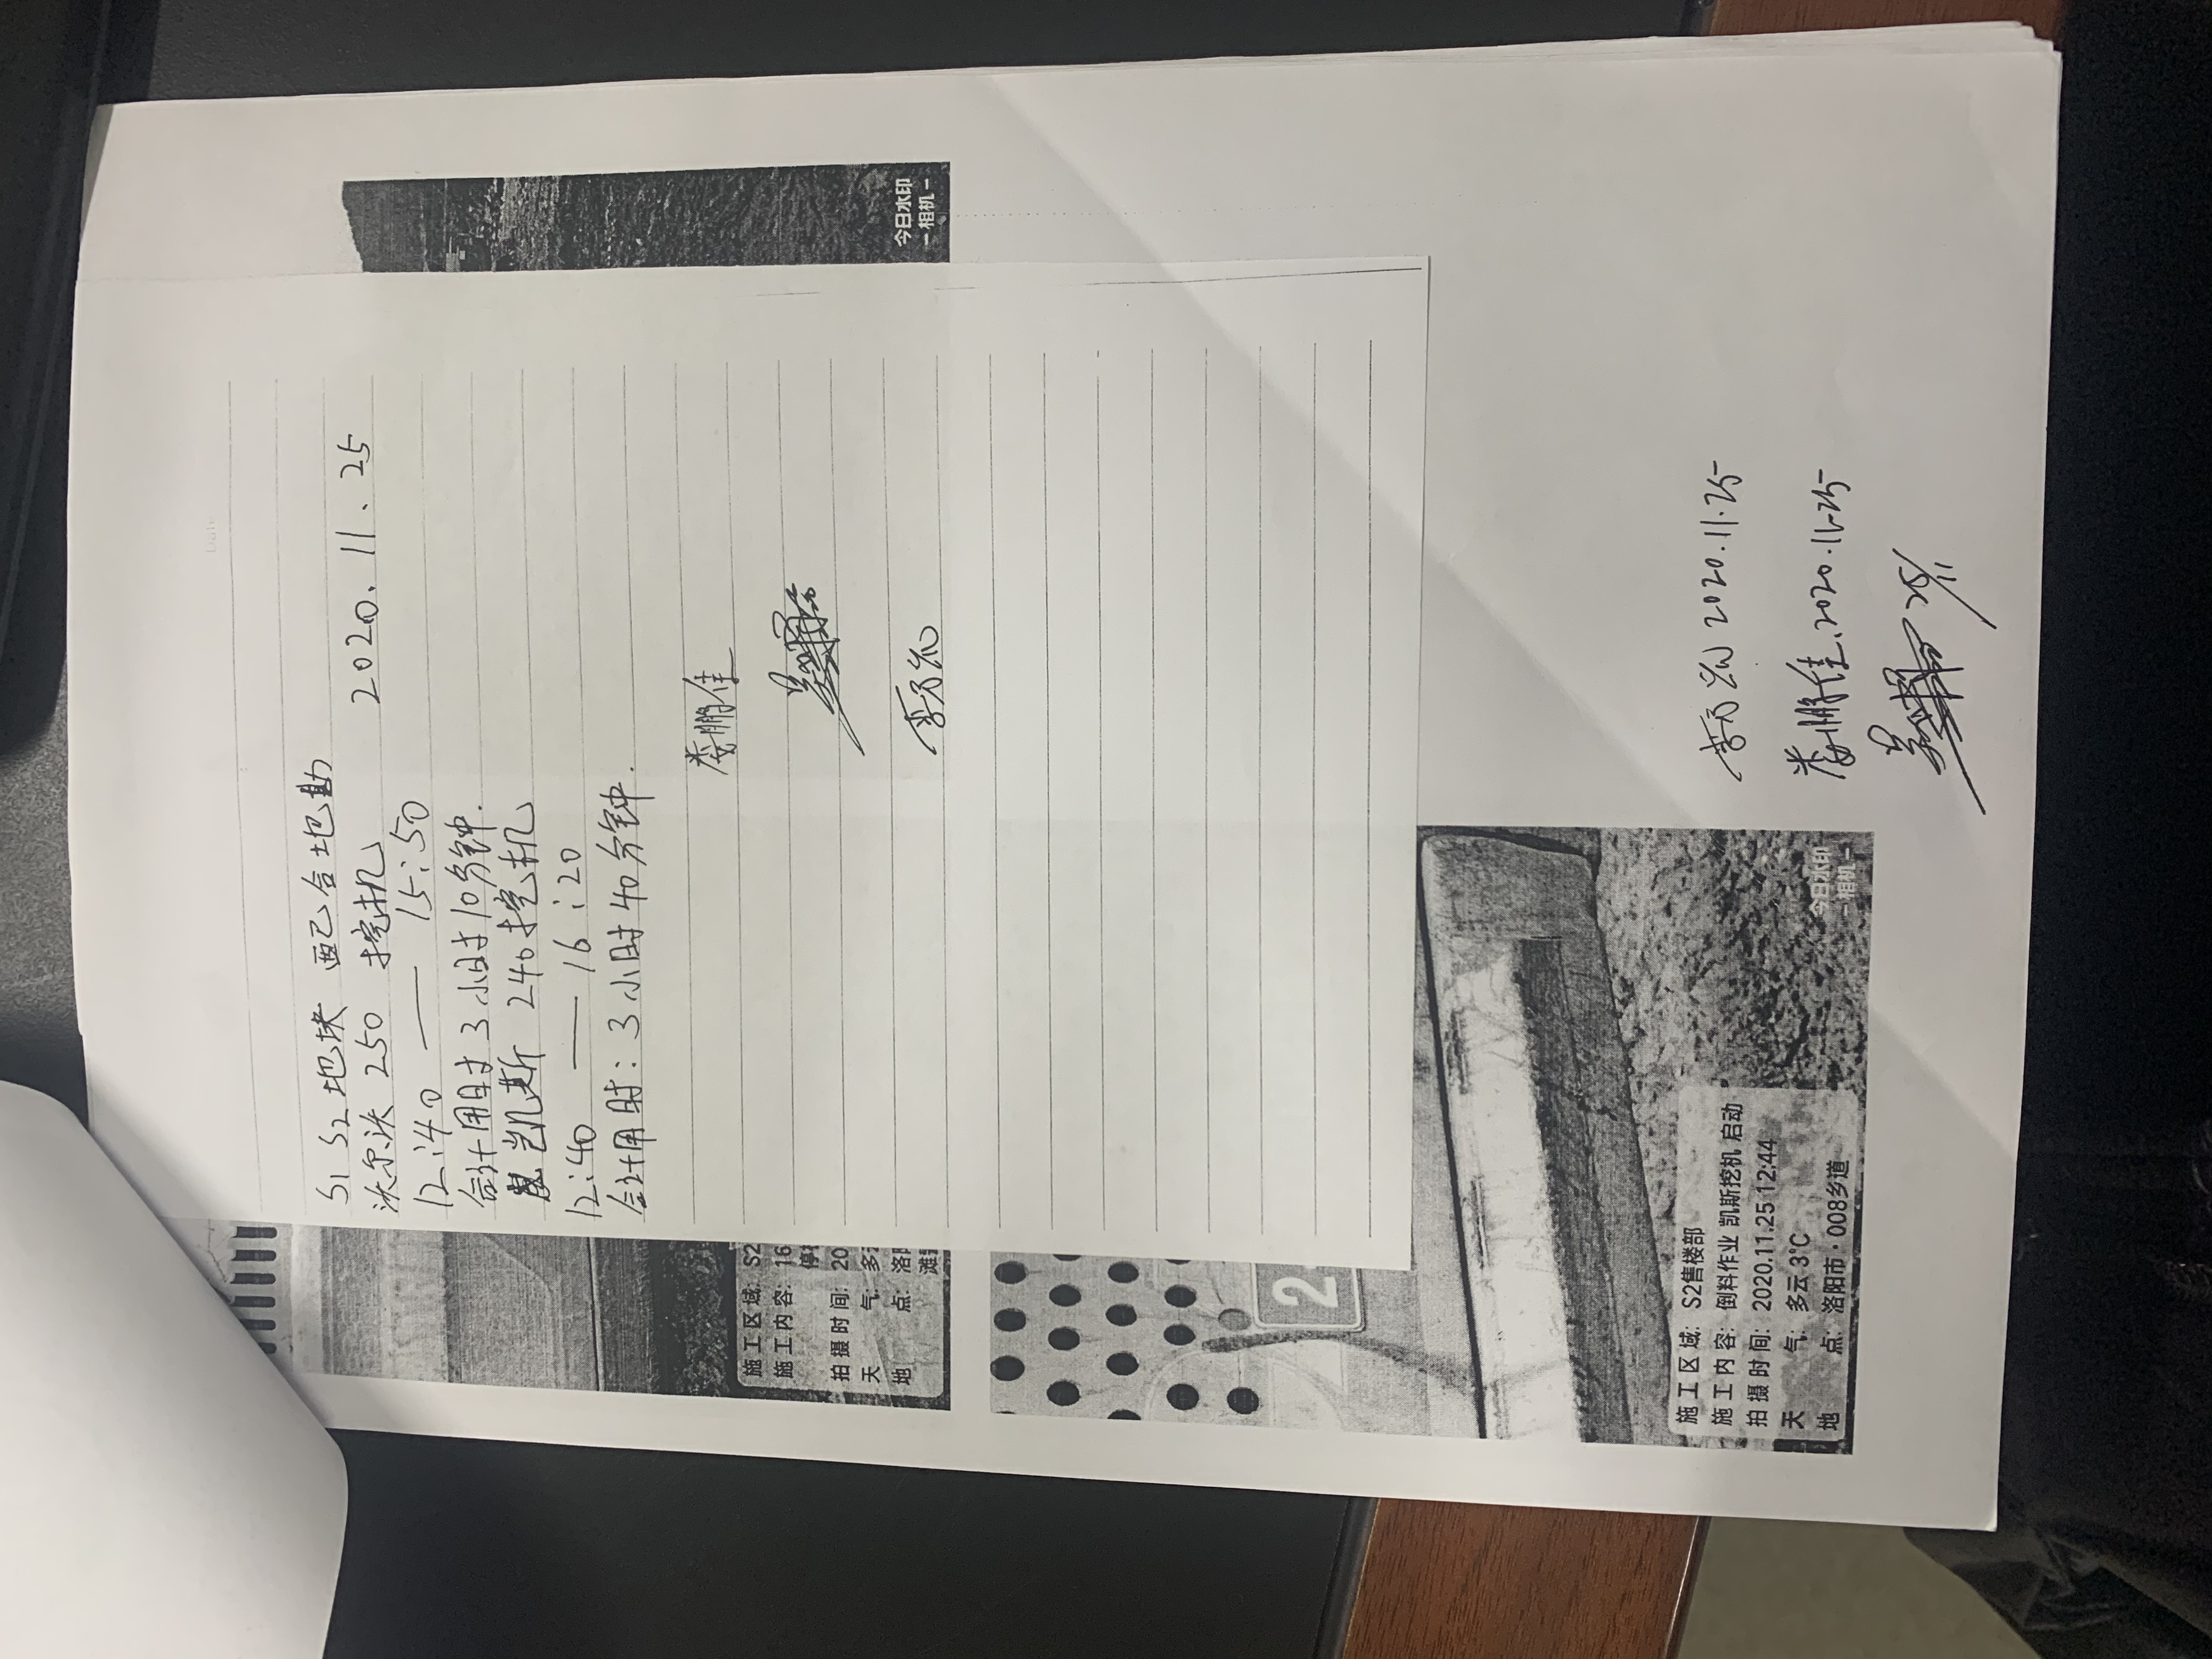 S1 S2地块 配合地勘
沃尔沃 250 挖机 2020.11.25
12:40 —— 15:50
合计用时 3小时10分钟.
凯斯 240挖机
12:40 —— 16:20
合计用时: 3小时40分钟.
娄鹏佳
今日水印
-相机-
施工区域: S2
施工内容: 16
停
拍摄时间: 20
天 气: 多
地 点: 洛
滩
2
施工区域: S2售楼部
施工内容: 倒料作业 凯斯挖机 启动
拍摄时间: 2020.11.25 12:44
天 气: 多云 3℃
地 点: 洛阳市·008乡道
今日水印
-相机-
2020.11.25
娄鹏佳.2020.11.25
25/11